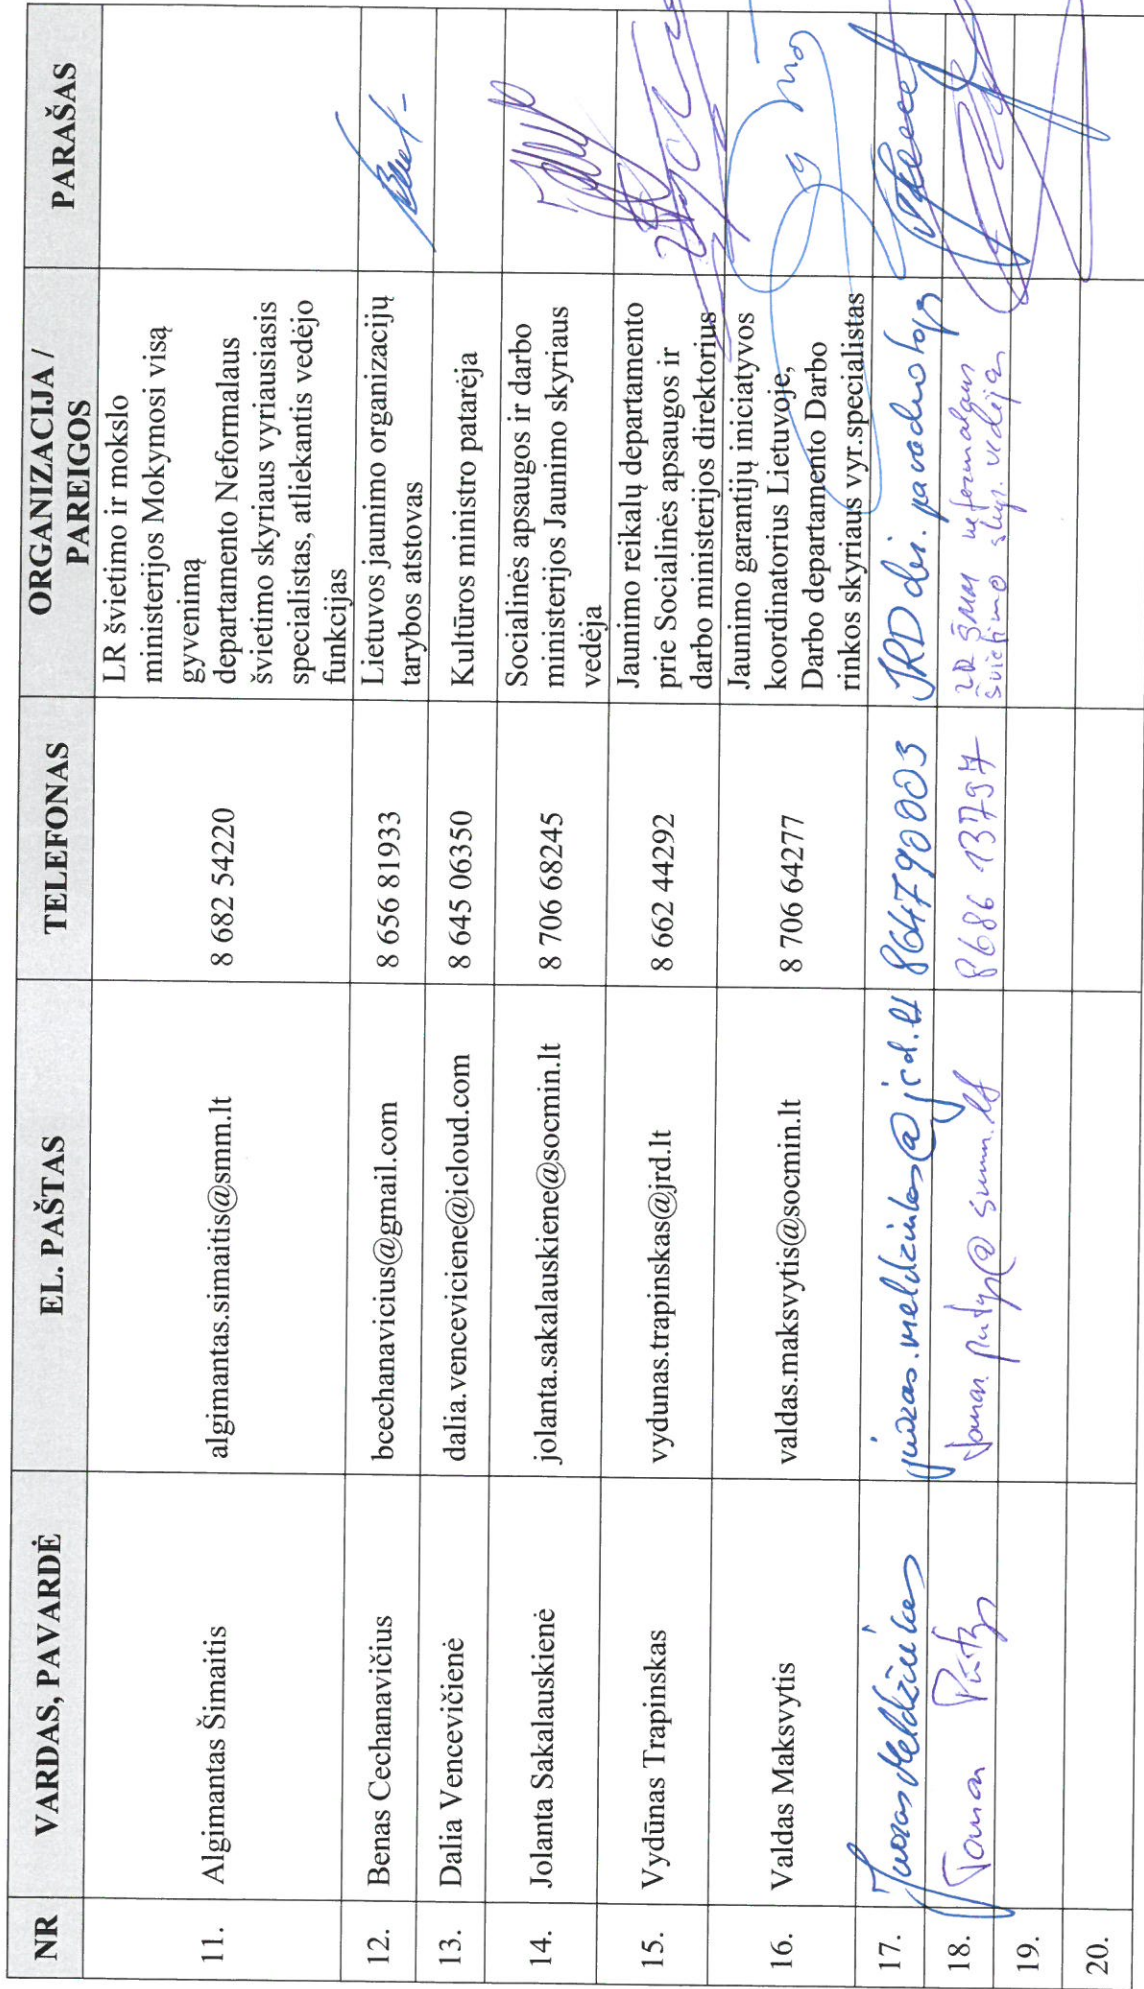 NR VARDAS, PAVARDĖ EL. PAŠTAS TELEFONAS ORGANIZACIJA / PAREIGOS PARAŠAS
11. Algimantas Šimaitis algimantas.simaitis@smm.lt 8 682 54220 LR švietimo ir mokslo
ministerijos Mokymosi visą
gyvenimą
departamento Neformalaus
švietimo skyriaus vyriausiasis
specialistas, atliekantis vedėjo
funkcijas
12. Benas Cechanavičius bcechanavicius@gmail.com 8 656 81933 Lietuvos jaunimo organizacijų
tarybos atstovas
13. Dalia Vencevičienė dalia.venceviciene@icloud.com 8 645 06350 Kultūros ministro patarėja
14. Jolanta Sakalauskienė jolanta.sakalauskiene@socmin.lt 8 706 68245 Socialinės apsaugos ir darbo
ministerijos Jaunimo skyriaus
vedėja
15. Vydūnas Trapinskas vydunas.trapinskas@jrd.lt 8 662 44292 Jaunimo reikalų departamento
prie Socialinės apsaugos ir
darbo ministerijos direktorius
16. Valdas Maksvytis valdas.maksvytis@socmin.lt 8 706 64277 Jaunimo garantijų iniciatyvos
koordinatorius Lietuvoje,
Darbo departamento Darbo
rinkos skyriaus vyr.specialistas
17. Juozas Meldžiukas juozas.meldziukas@jrd.lt 864790003 JRD dir. pavaduotojas
18. Tomas Pūtys tomas.putys@smm.lt 8686 13797 LR ŠMM neformalaus
švietimo skyr. vedėjas
19.
20.